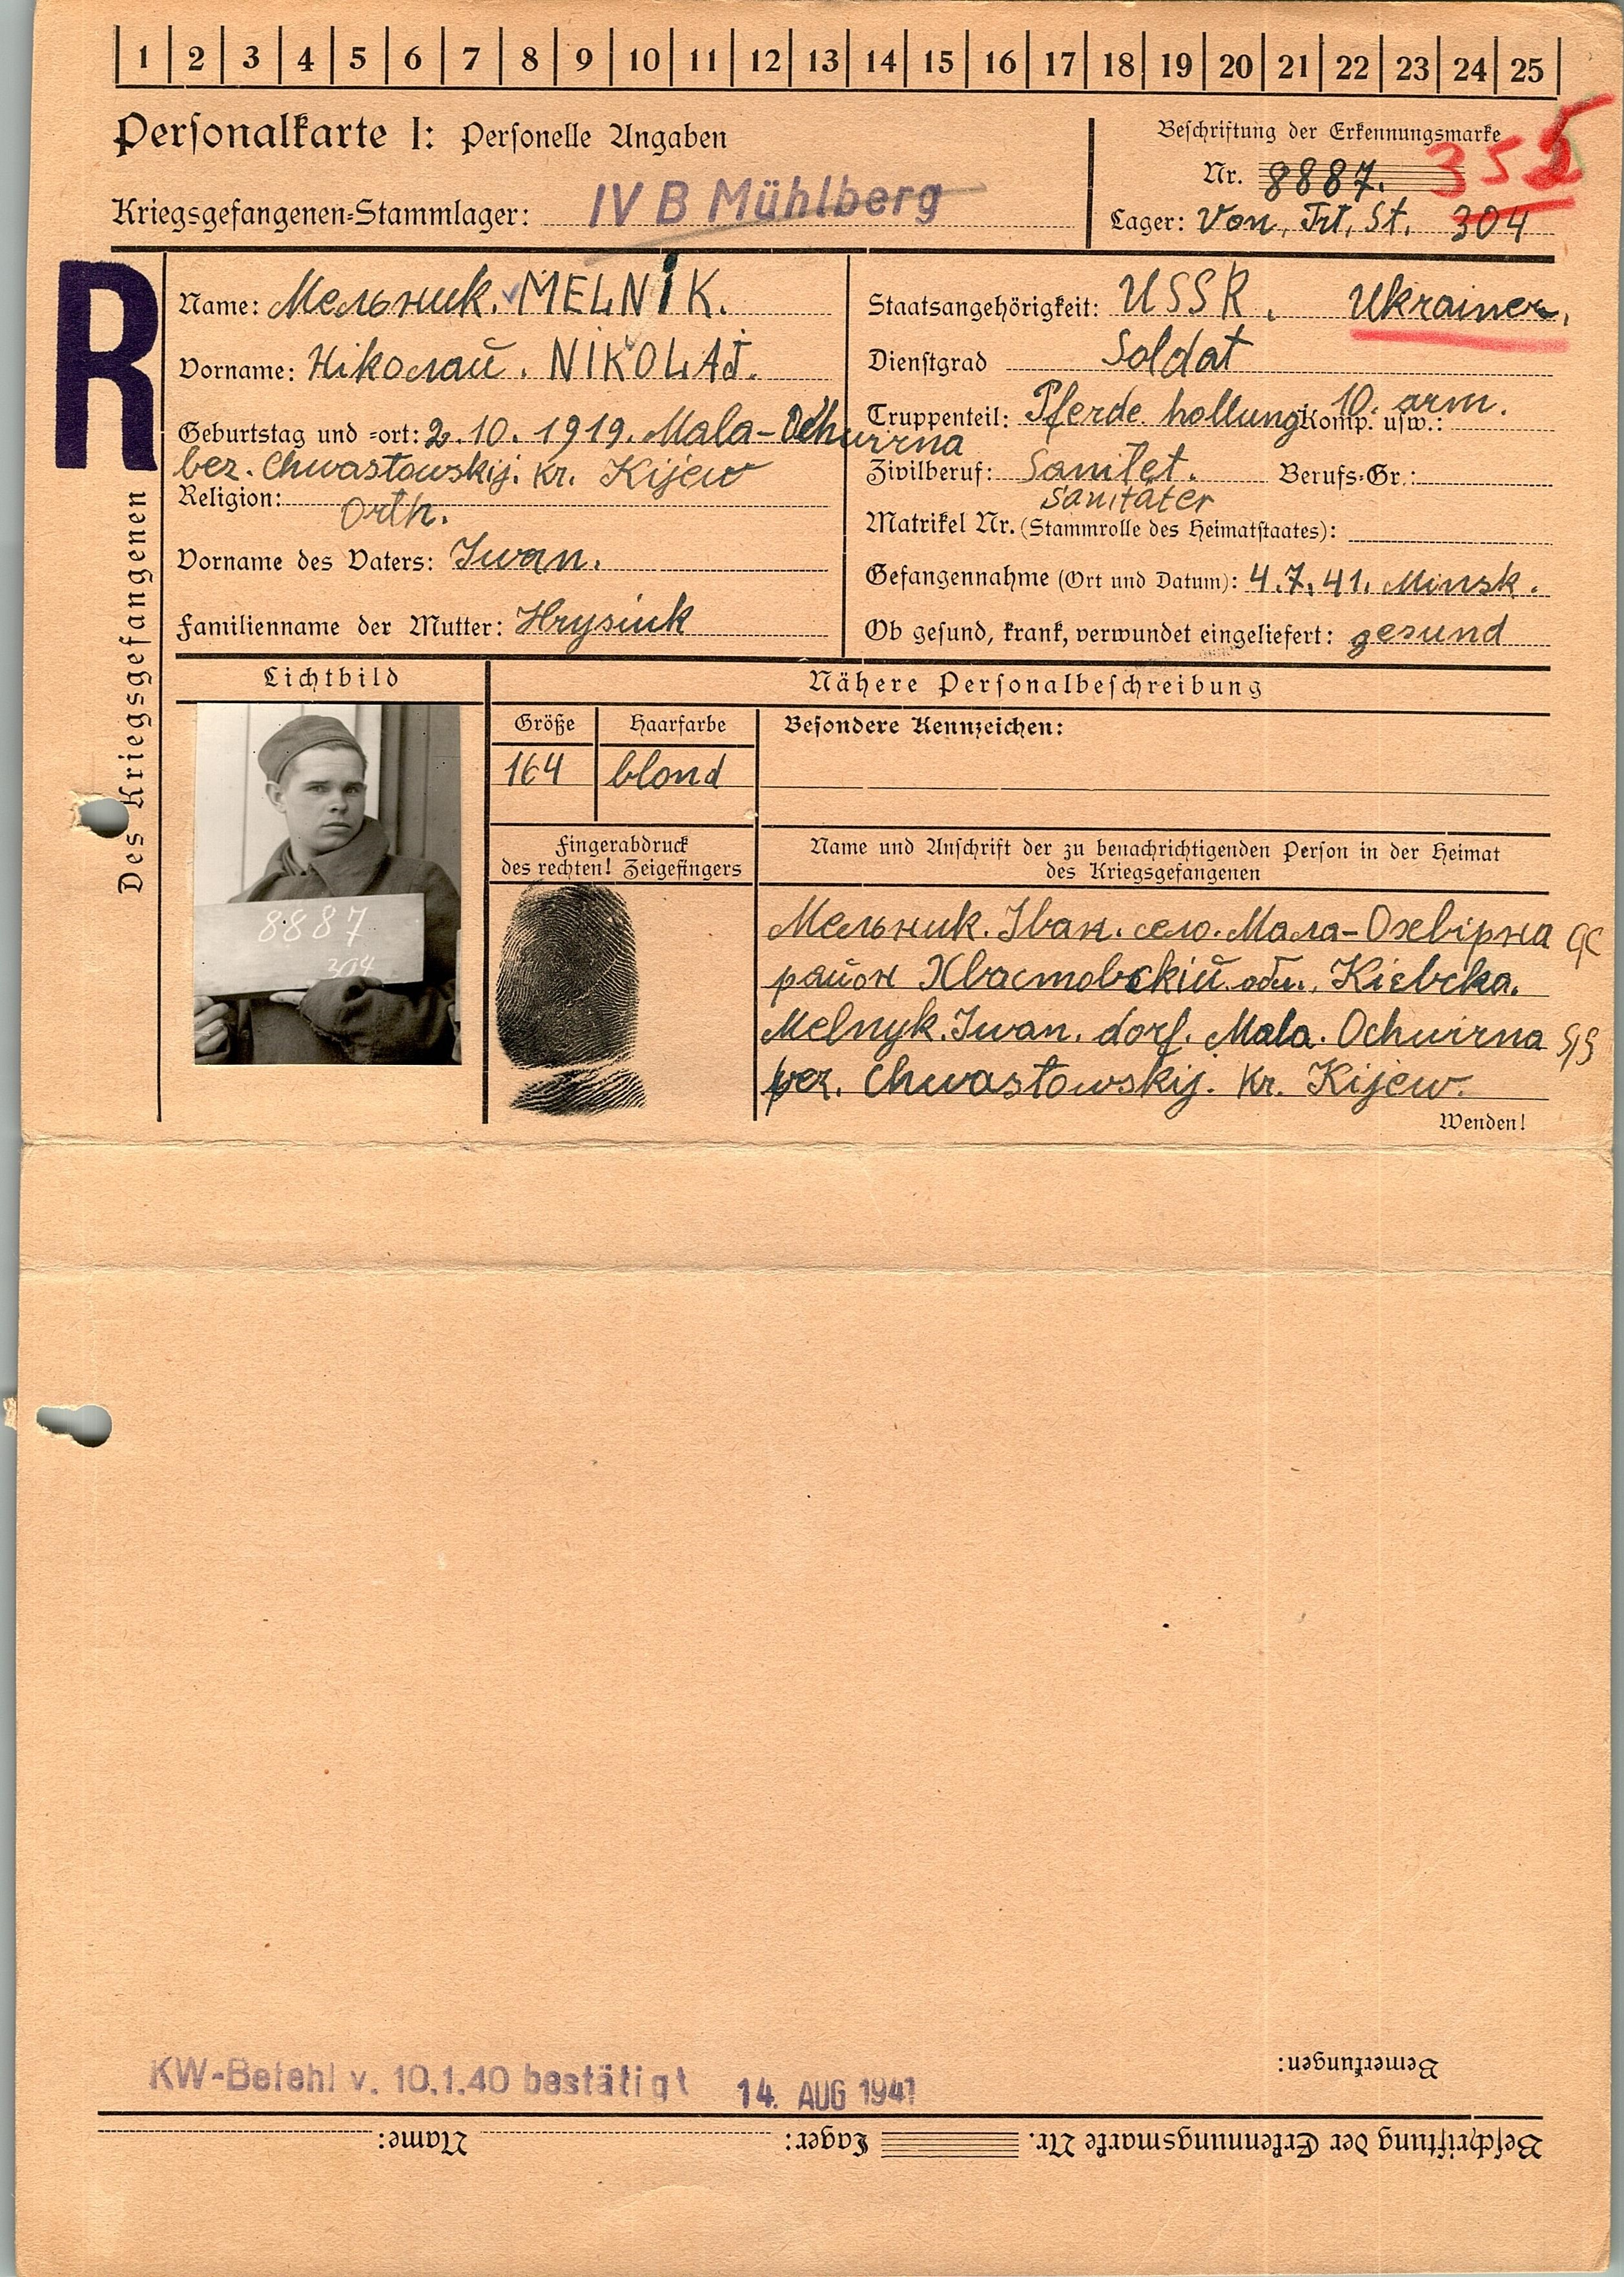 1 2 3 4 5 6 7 8 9 10 11 12 13 14 15 16 17 18 19 20 21 22 23 24 25
Personalkarte I: Personelle Angaben
Beschriftung der Erkennungsmarke
Nr. 8887. 355
Kriegsgefangenen-Stammlager: IV B Mühlberg
Lager: Von, Trt, St. 304
R
Des Kriegsgefangenen
Name: Мельник. MELNIK.
Vorname: Ніколай. NIKOLAJ.
Geburtstag und =ort: 2.10.1919. Mala-Ochwirna
bez. Chwastowskij. Kr. Kijew
Religion: Orth.
Vorname des Vaters: Iwan.
Familienname der Mutter: Hrysiuk
Staatsangehörigkeit: USSR. Ukrainer.
Dienstgrad Soldat
Truppenteil: Pferde hollung Komp. usw.: 10. arm.
Zivilberuf: Sanitet. Berufs-Gr.:
Sanitäter
Matrikel Nr. (Stammrolle des Heimatstaates):
Gefangennahme (Ort und Datum): 4.7.41. Minsk.
Ob gesund, krank, verwundet eingeliefert: gesund
Lichtbild
8887
304
Nähere Personalbeschreibung
Größe Haarfarbe Besondere Kennzeichen:
164 blond
Fingerabdruck
des rechten! Zeigefingers
Name und Anschrift der zu benachrichtigenden Person in der Heimat
des Kriegsgefangenen
Мельник. Іван. село. Мала-Охвірна
район Хвастовскій. Кіевска.
Melnyk. Iwan. dorf. Mala. Ochwirna
bez. Chwastowskij. Kr. Kijew.
Wenden!
Bemerkungen:
KW-Befehl v. 10.1.40 bestätigt 14. AUG 1941
Beschriftung der Erkennungsmarke Nr. Lager: Name: